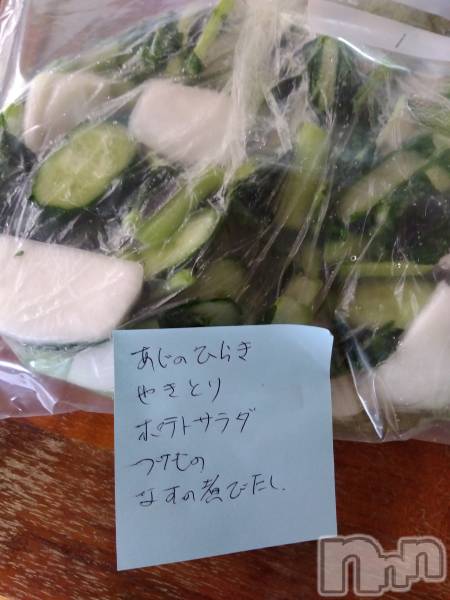 あじのひらき
やきとり
ポテトサラダ
つけもの
なすの煮びたし
nnn